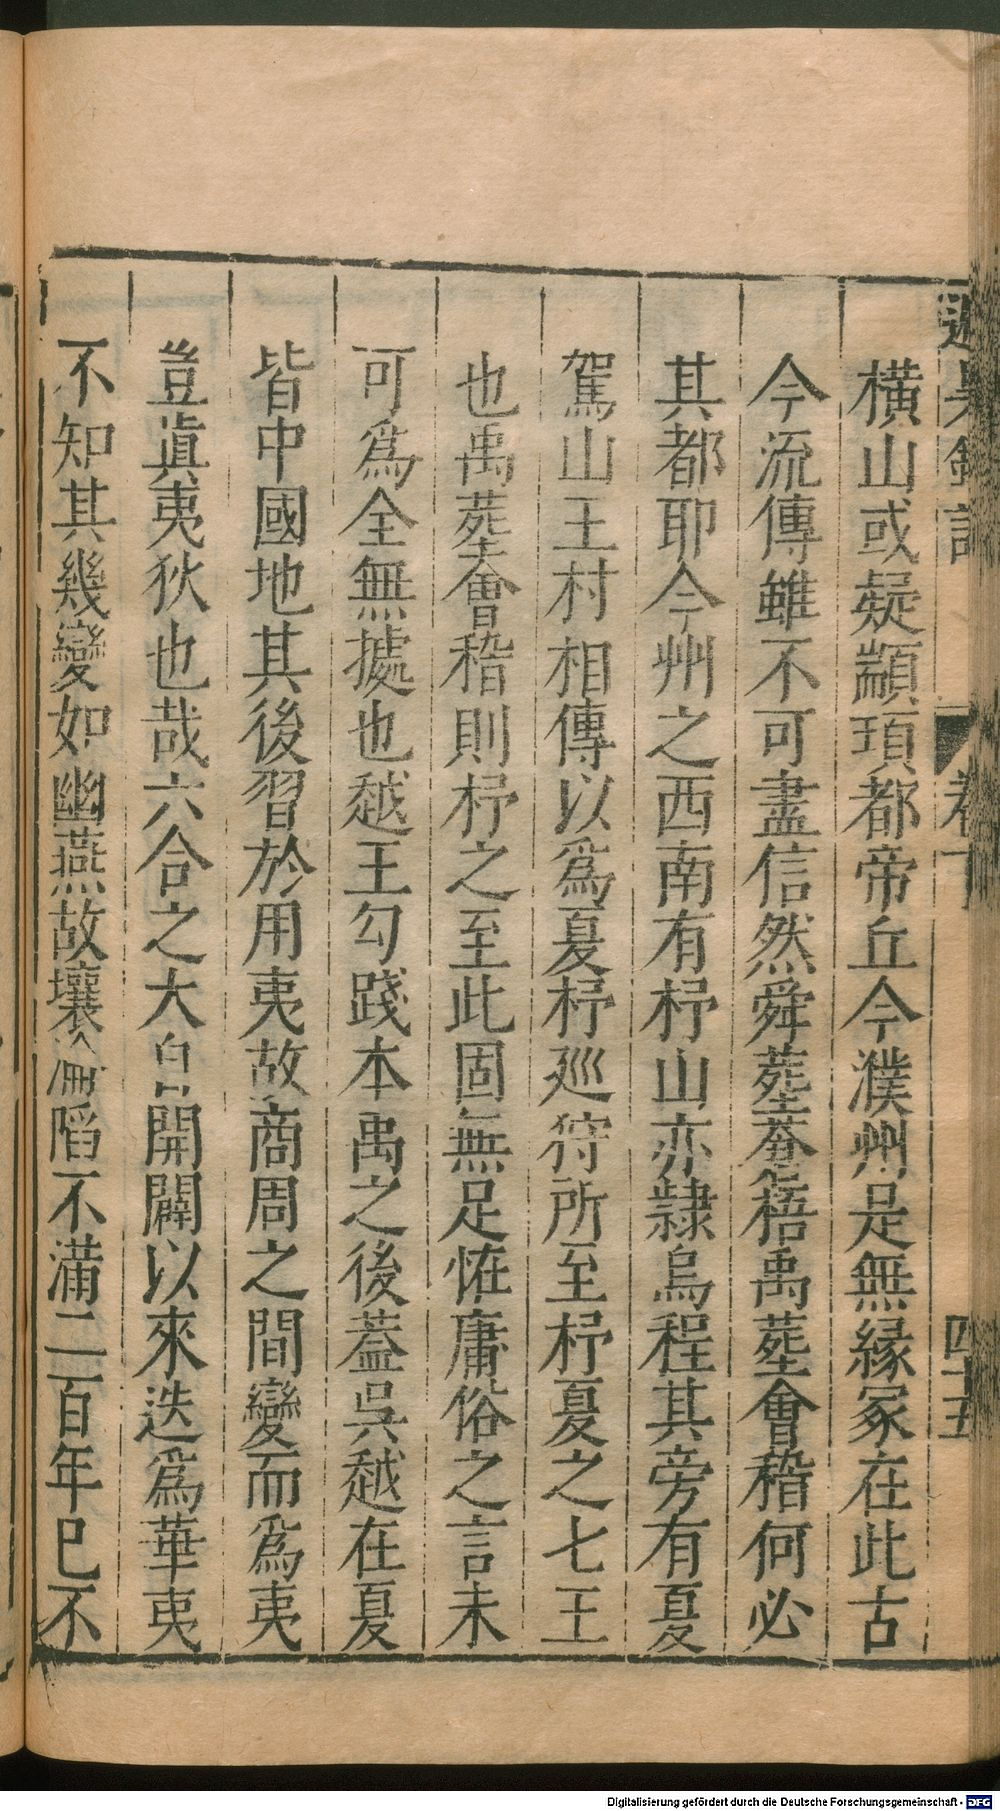 橫山或疑顓頊都帝丘今濮州是無緣冢在此古
今流傳雖不可盡信然舜葬蒼梧禹葬會稽何必
其都耶今州之西南有杼山亦隷烏程其旁有夏
駕山王村相傳以爲夏杼廵狩所至杼夏之七王
也禹葬會稽則杼之至此固無足恠庸俗之言未
可爲全無㨿也越王勾踐本禹之後葢吳越在夏
皆中國地其後習於用夷故商周之間變而爲夷
豈眞夷狄也哉六合之大自開闢以來迭爲華夷
不知其幾變如幽燕故壤淪陷不滿二百年已不
卷下
四十五
Digitalisierung gefördert durch die Deutsche Forschungsgemeinschaft - DFG